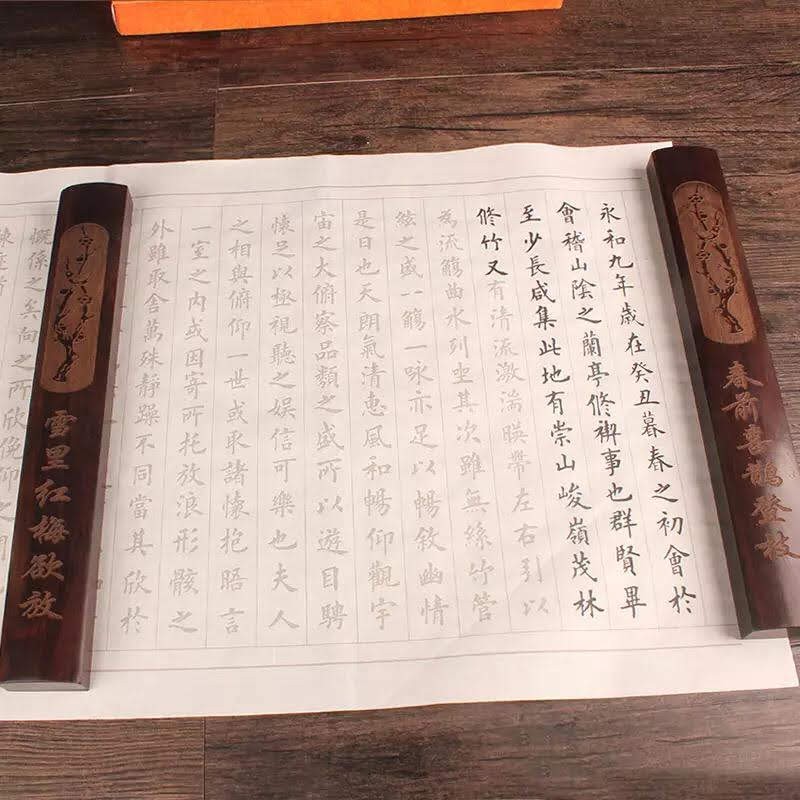 春前喜鹊登枝
永和九年歲在癸丑暮春之初會於
會稽山陰之蘭亭修禊事也群賢畢
至少長咸集此地有崇山峻嶺茂林
修竹又有清流激湍暎帶左右引以
為流觴曲水列坐其次雖無絲竹管
絃之盛一觴一詠亦足以暢敘幽情
是日也天朗氣清惠風和暢仰觀宇
宙之大俯察品類之盛所以遊目騁
懷足以極視聽之娛信可樂也夫人
之相與俯仰一世或取諸懷抱晤言
一室之內或因寄所托放浪形骸之
外雖取舍萬殊靜躁不同當其欣於
雪里红梅欲放
慨係之矣向之所欣俛仰之間